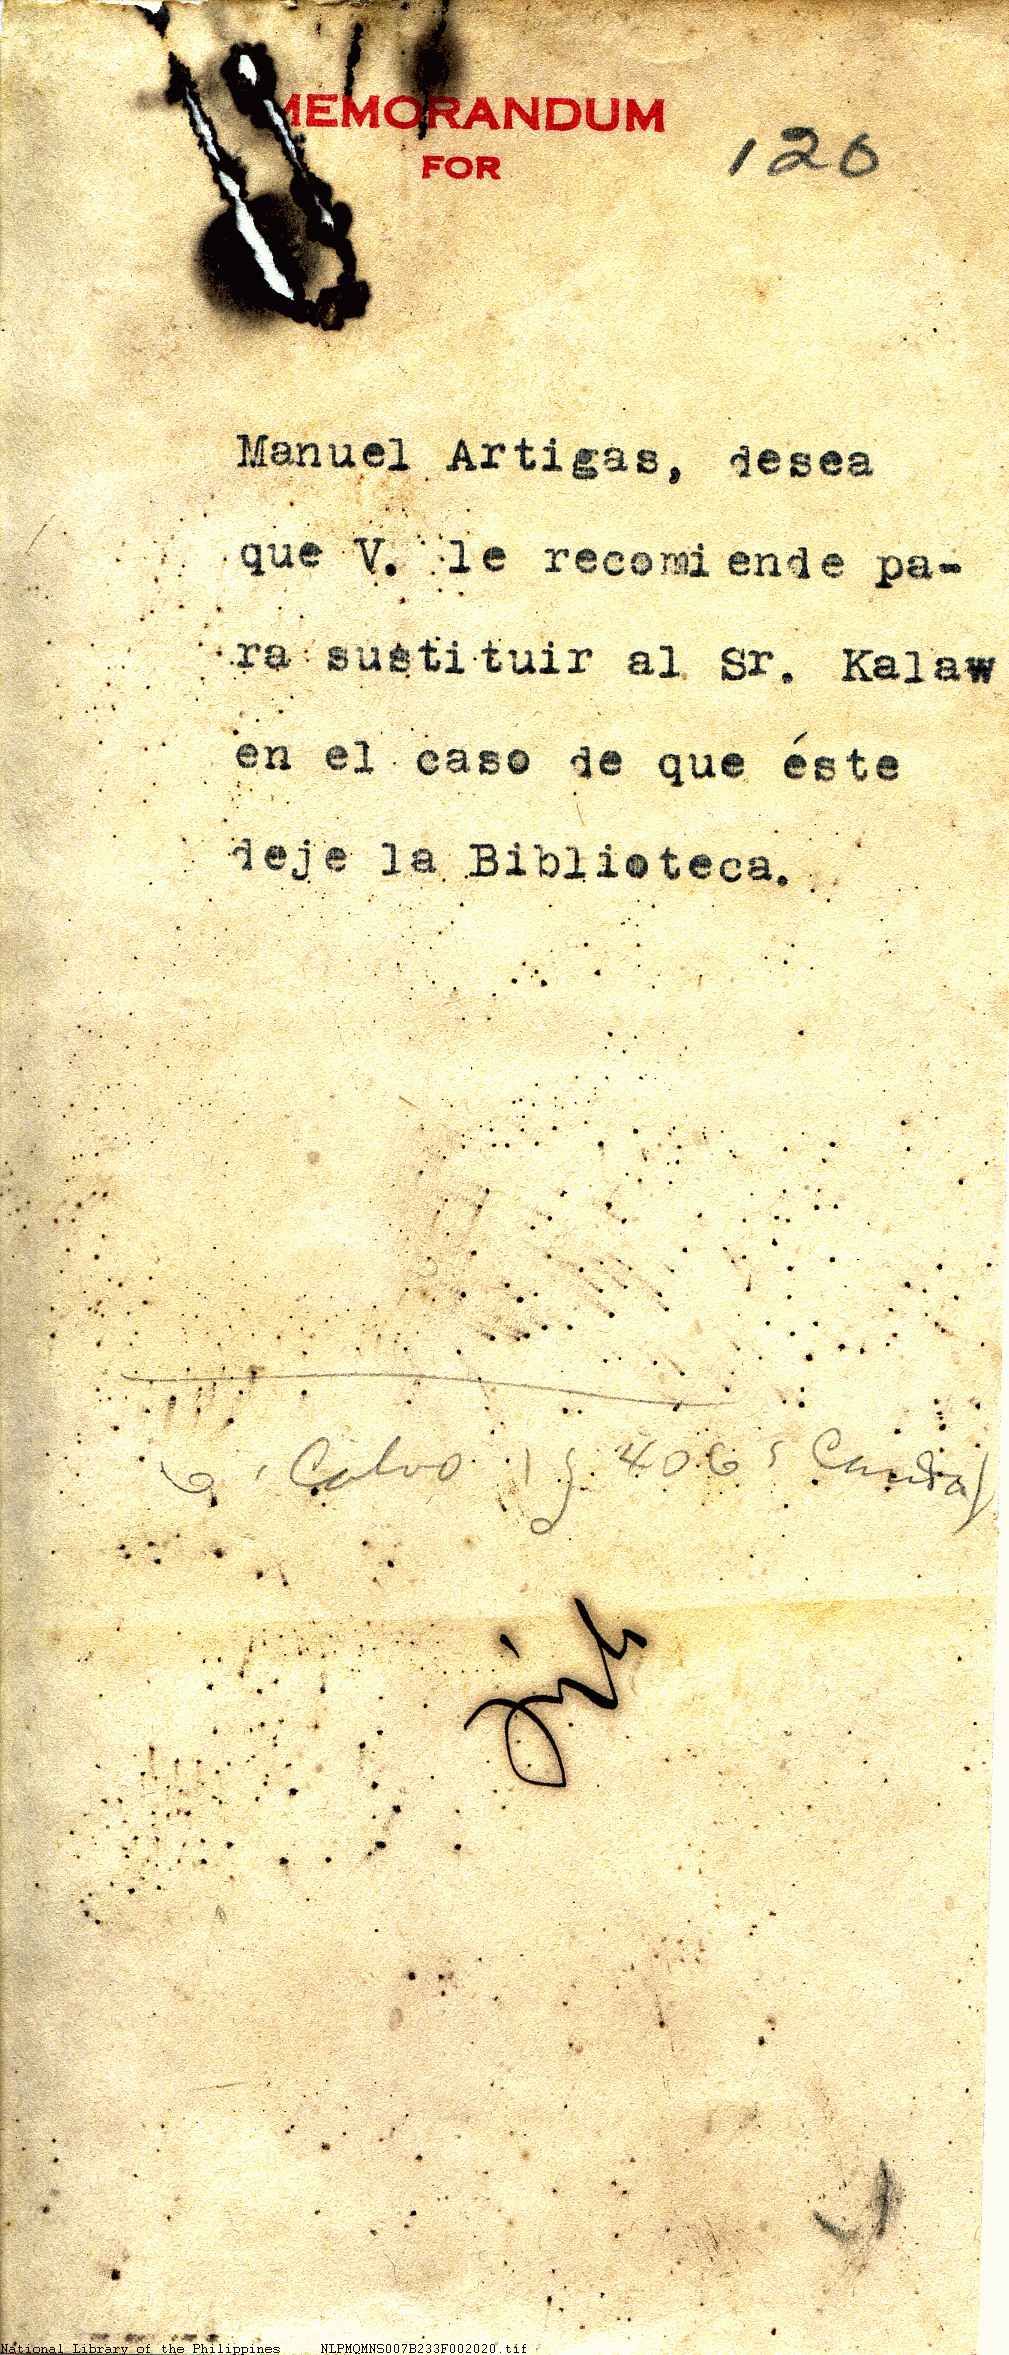 MEMORANDUM
FOR
126
Manuel Artigas, desea
que V. le recomiende pa-
ra sustituir al Sr. Kalaw
en el caso de que éste
deje la Biblioteca.
Calvo 406
National Library of the Philippines NLPMQMNS007B233F002020.tif